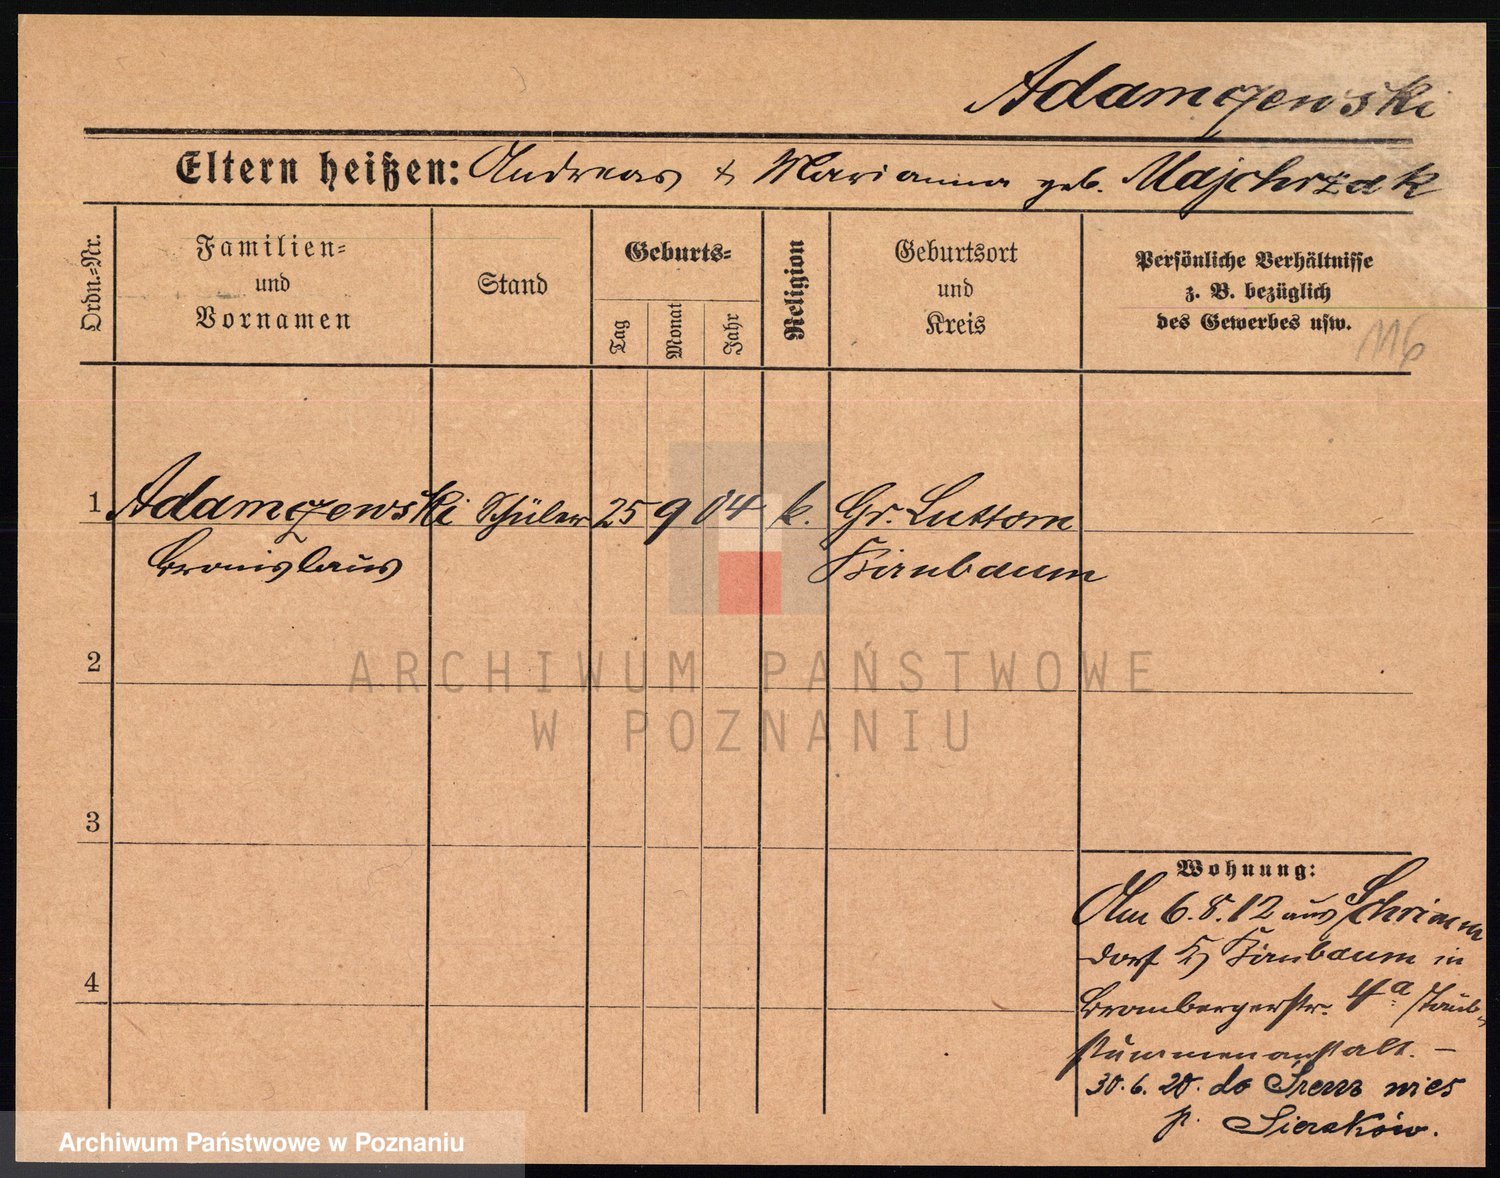 Adamczewski
Eltern heißen: Andreas & Marianna geb. Majchrzak
Ordn.-Nr.
Familien-
und
Vornamen
Stand
Geburts-
Tag
Monat
Jahr
Religion
Geburtsort
und
Kreis
Persönliche Verhältnisse
z. B. bezüglich
des Gewerbes usw.
116
1 Adamczewski Schüler 25 9 04 k. Gr. Luttom
Bronislaus Birnbaum
2
3
4
Wohnung:
Am 6.8.12 aus Schrimm
dorf Birnbaum in
Brombergerstr. 4a Taub-
stummenanstalt. –
30.6.20. do wies
p. Sieraków.
ARCHIWUM PAŃSTWOWE
W POZNANIU
Archiwum Państwowe w Poznaniu